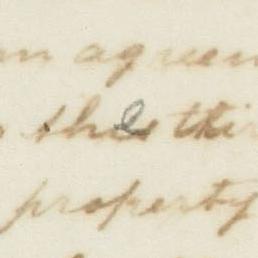 an agreem
the thir
property